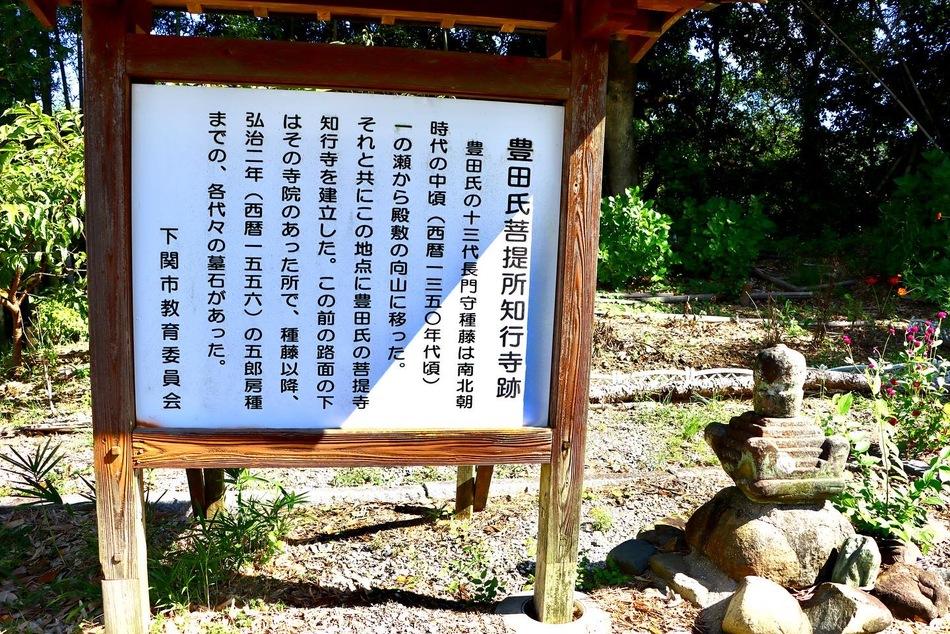 豊田氏菩提所知行寺跡
豊田氏の十三代長門守種藤は南北朝
時代の中頃（西暦一三五〇年代頃）
一の瀬から殿敷の向山に移った。
それと共にこの地点に豊田氏の菩提寺
知行寺を建立した。この前の路面の下
はその寺院のあった所で、種藤以降、
弘治二年（西暦一五五六）の五郎房種
までの、各代々の墓石があった。
下関市教育委員会